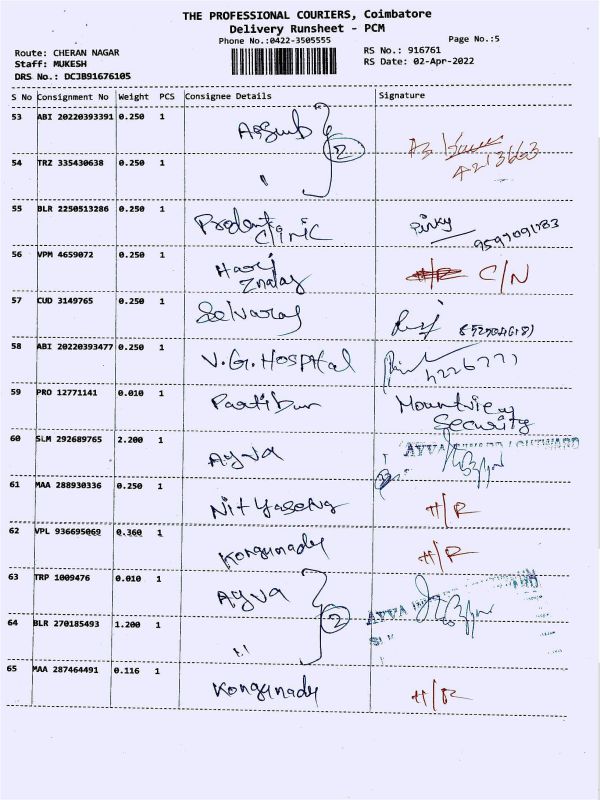 THE PROFESSIONAL COURIERS, Coimbatore
Delivery Runsheet - PCM
Phone No.:0422-3505555
Page No.:5
Route: CHERAN NAGAR
RS No.: 916761
Staff: MUKESH
RS Date: 02-Apr-2022
DRS No.: DCJB91676105
S No Consignment No Weight PCS Consignee Details Signature
53 ABI 20220393391 0.250 1
2
54 TRZ 335430638 0.250 1 "
55 BLR 2250513286 0.250 1 Clinic Pinky
56 VPM 4659072 0.250 1 Hari H/R C/N
57 CUD 3149765 0.250 1 Selvaraj
58 ABI 20220393477 0.250 1 V.G. Hospital
59 PRO 12771141 0.010 1 Mountview
Security
60 SLM 292689765 2.200 1 Ayva AYVA
61 MAA 288930336 0.250 1 H/R
62 VPL 936695069 0.360 1 Kongunady H/R
63 TRP 1009476 0.010 1 Ayva
2 AYVA
64 BLR 270185493 1.200 1 "
65 MAA 287464491 0.116 1 Kongunady H/R